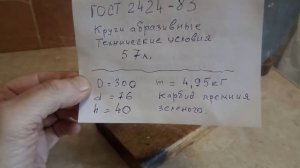 ГОСТ 2424-83
Круги абразивные
Технические условия
57л.
D=300 m = 4,95кг
d=76 карбид кремния
h=40 зеленого